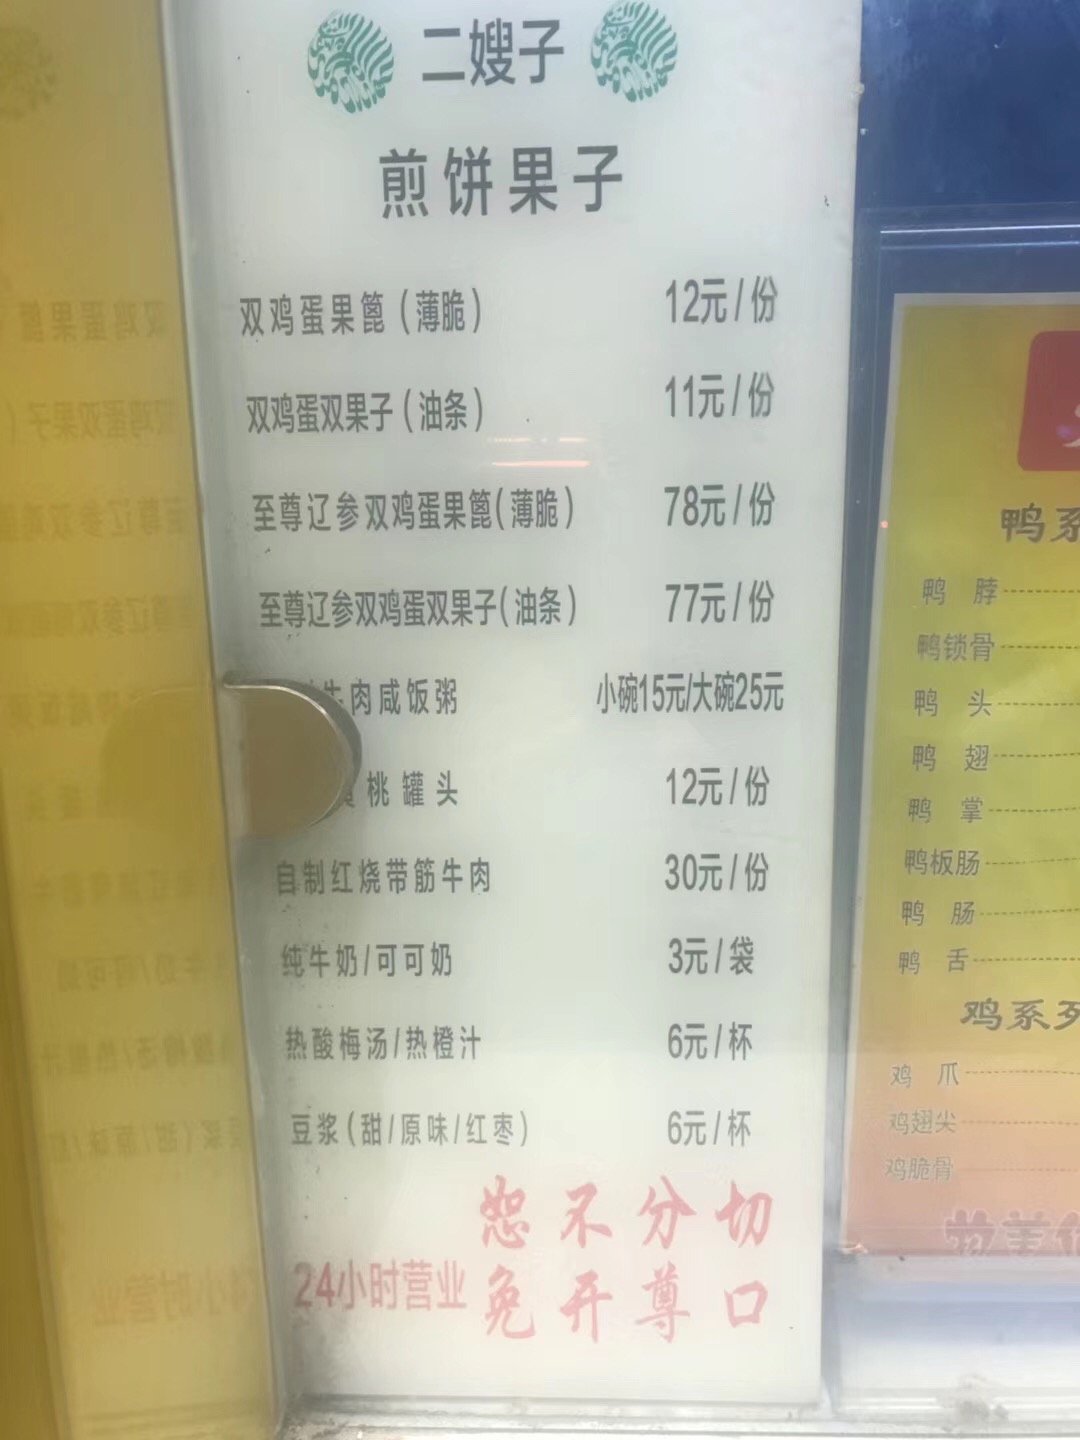 二嫂子
煎饼果子
双鸡蛋果篦（薄脆） 12元/份
双鸡蛋双果子（油条） 11元/份
至尊辽参双鸡蛋果篦（薄脆） 78元/份
至尊辽参双鸡蛋双果子（油条） 77元/份
牛肉咸饭粥 小碗15元/大碗25元
桃罐头 12元/份
自制红烧带筋牛肉 30元/份
纯牛奶/可可奶 3元/袋
热酸梅汤/热橙汁 6元/杯
豆浆（甜/原味/红枣） 6元/杯
恕不分切
24小时营业 免开尊口
鸭系
鸭脖
鸭锁骨
鸭头
鸭翅
鸭掌
鸭板肠
鸭肠
鸭舌
鸡系列
鸡爪
鸡翅尖
鸡脆骨